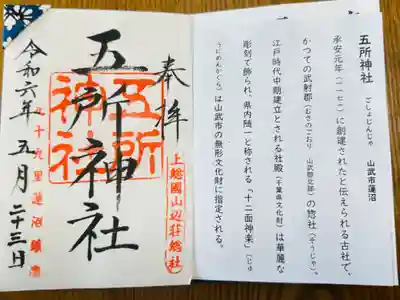 五所神社 ごしょじんじゃ 山武市蓮沼
承安元年(一一七一)に創建されたと伝えられる古社で、
かつての武射郡(むさのこおり 山武郡北部)の惣社(そうじゃ)。
江戸時代中期建立とされる社殿(千葉県文化財)は華麗な
彫刻で飾られ、県内随一と称される「十二面神楽」(じゅ
うにめんかぐら)は山武市の無形文化財に指定される。
奉拝
上総國山辺荘総社
五所神社
五所
神社
九十九里蓮沼鎮
令和六年五月二十三日